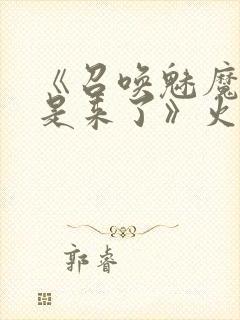 《召唤魅魔
是来了》火
郭睿